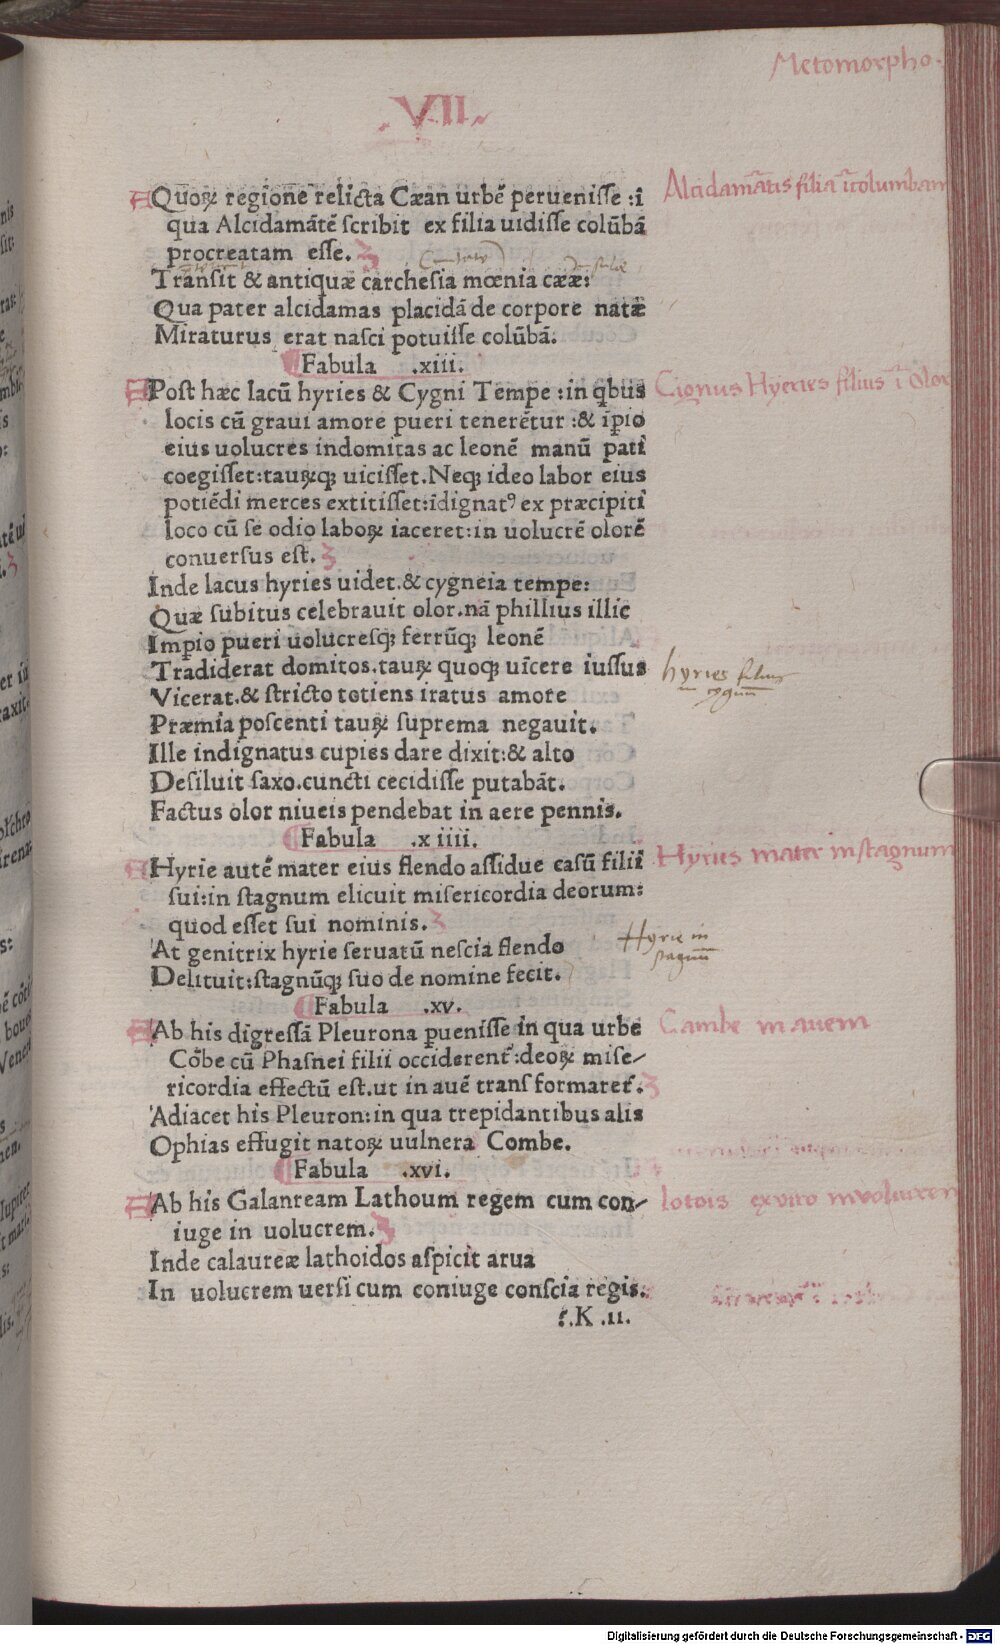 Metomorpho.
.VII.
Quoꝝ regione relicta Cæan urbē peruenisse :ī
Alcidamātis filia ī columbam
qua Alcidamātē scribit ex filia uidisse colūbā
procreatam esse.
Transit & antiquæ carchesia mœnia cææ:
Qua pater alcidamas placidā de corpore natæ
Miraturus erat nasci potuisse colūbā.
Fabula .xiii.
Post hæc lacū hyries & Cygni Tempe :in qbus
Cignus Hyeries filius ī olor
locis cū graui amore pueri tenerētur :& īpio
eius uolucres indomitas ac leonē manū pati
coegisset:tauꝝqꝫ uicisset.Neqꝫ ideo labor eius
potiēdi merces extitisset:īdignatꝰ ex præcipiti
loco cū se odio laboꝝ iaceret:in uolucrē olorē
conuersus est.
Inde lacus hyries uidet.& cygneia tempe:
Quæ subitus celebrauit olor.nā phillius illic
Impio pueri uolucresqꝫ ferrūqꝫ leonē
Tradiderat domitos.tauꝝ quoqꝫ uīcere iussus
hyries filius
in cygnum
Vicerat.& stricto totiens iratus amore
Præmia poscenti tauꝝ suprema negauit.
Ille indignatus cupies dare dixit:& alto
Desiluit saxo.cuncti cecidisse putabāt.
Factus olor niueis pendebat in aere pennis.
Fabula .x iiii.
Hyrie autē mater eius flendo assidue casū filii
Hyries mater in stagnum
sui:in stagnum elicuit misericordia deorum:
quod esset sui nominis.
At genitrix hyrie seruatū nescia flendo
Hyrie in
stagnum
Delituit:stagnūqꝫ suo de nomine fecit.
Fabula .xv.
Ab his digressā Pleurona puenisse in qua urbe
Cambe in auem
Cōbe cū Phasnei filii occiderent:deoꝝ mise-
ricordia effectū est.ut in auē trans formaret.
Adiacet his Pleuron:in qua trepidantibus alis
Ophias effugit natoꝝ uulnera Combe.
Fabula .xvi.
Ab his Galanream Lathoum regem cum con-
lotois ex viro in volucrem
iuge in uolucrem.
Inde calaureæ lathoidos aspicit arua
In uolucrem uersi cum coniuge conscia regis.
.K .ii.
Digitalisierung gefördert durch die Deutsche Forschungsgemeinschaft - DFG